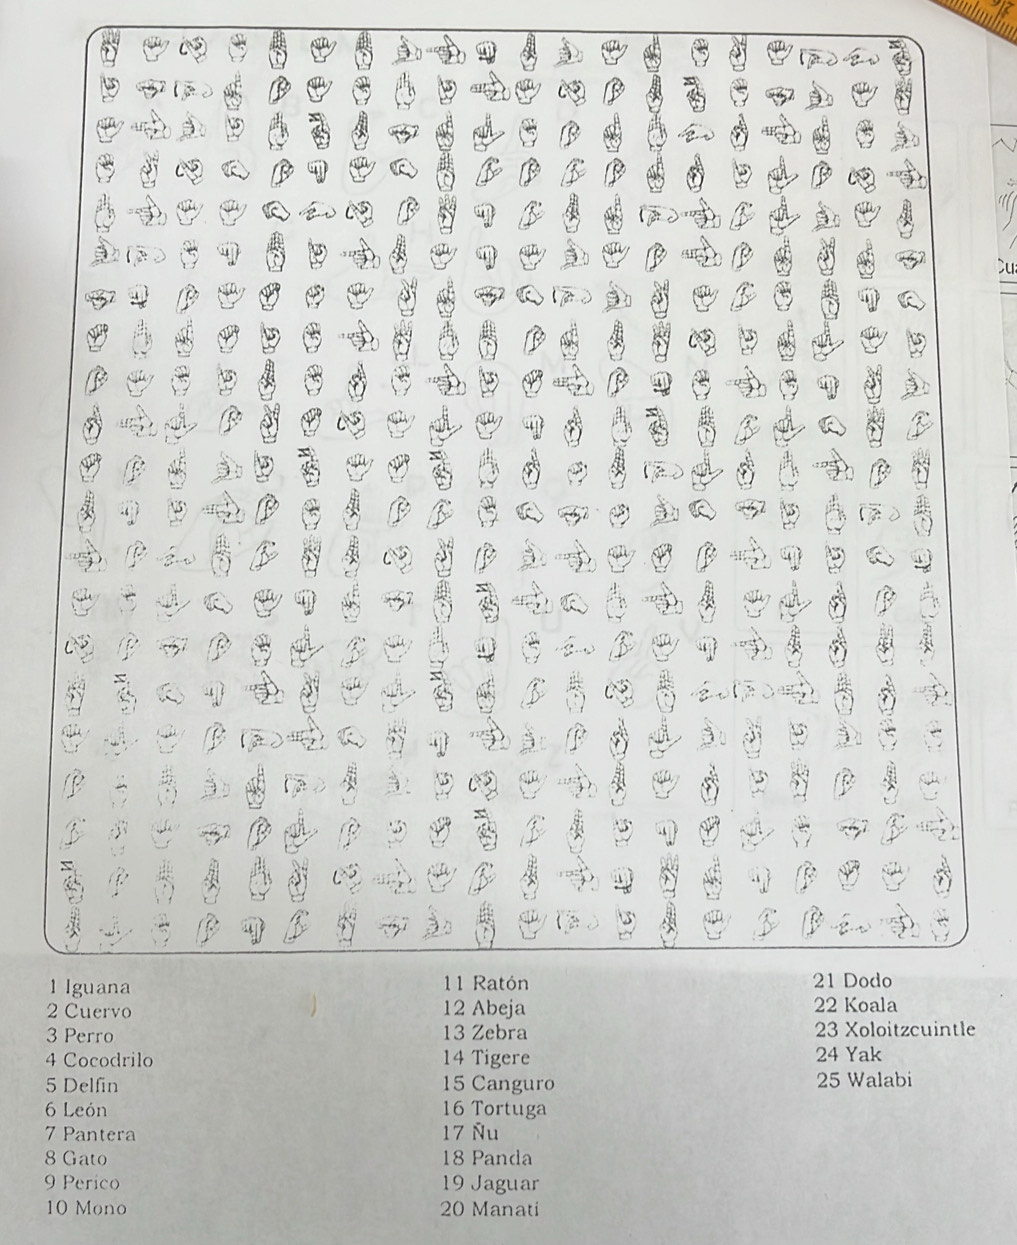 1 Iguana
2 Cuervo
3 Perro
4 Cocodrilo
5 Delfin
6 León
7 Pantera
8 Gato
9 Perico
10 Mono
11 Ratón
12 Abeja
13 Zebra
14 Tigere
15 Canguro
16 Tortuga
17 Ñu
18 Panda
19 Jaguar
20 Manatí
21 Dodo
22 Koala
23 Xoloitzcuintle
24 Yak
25 Walabi